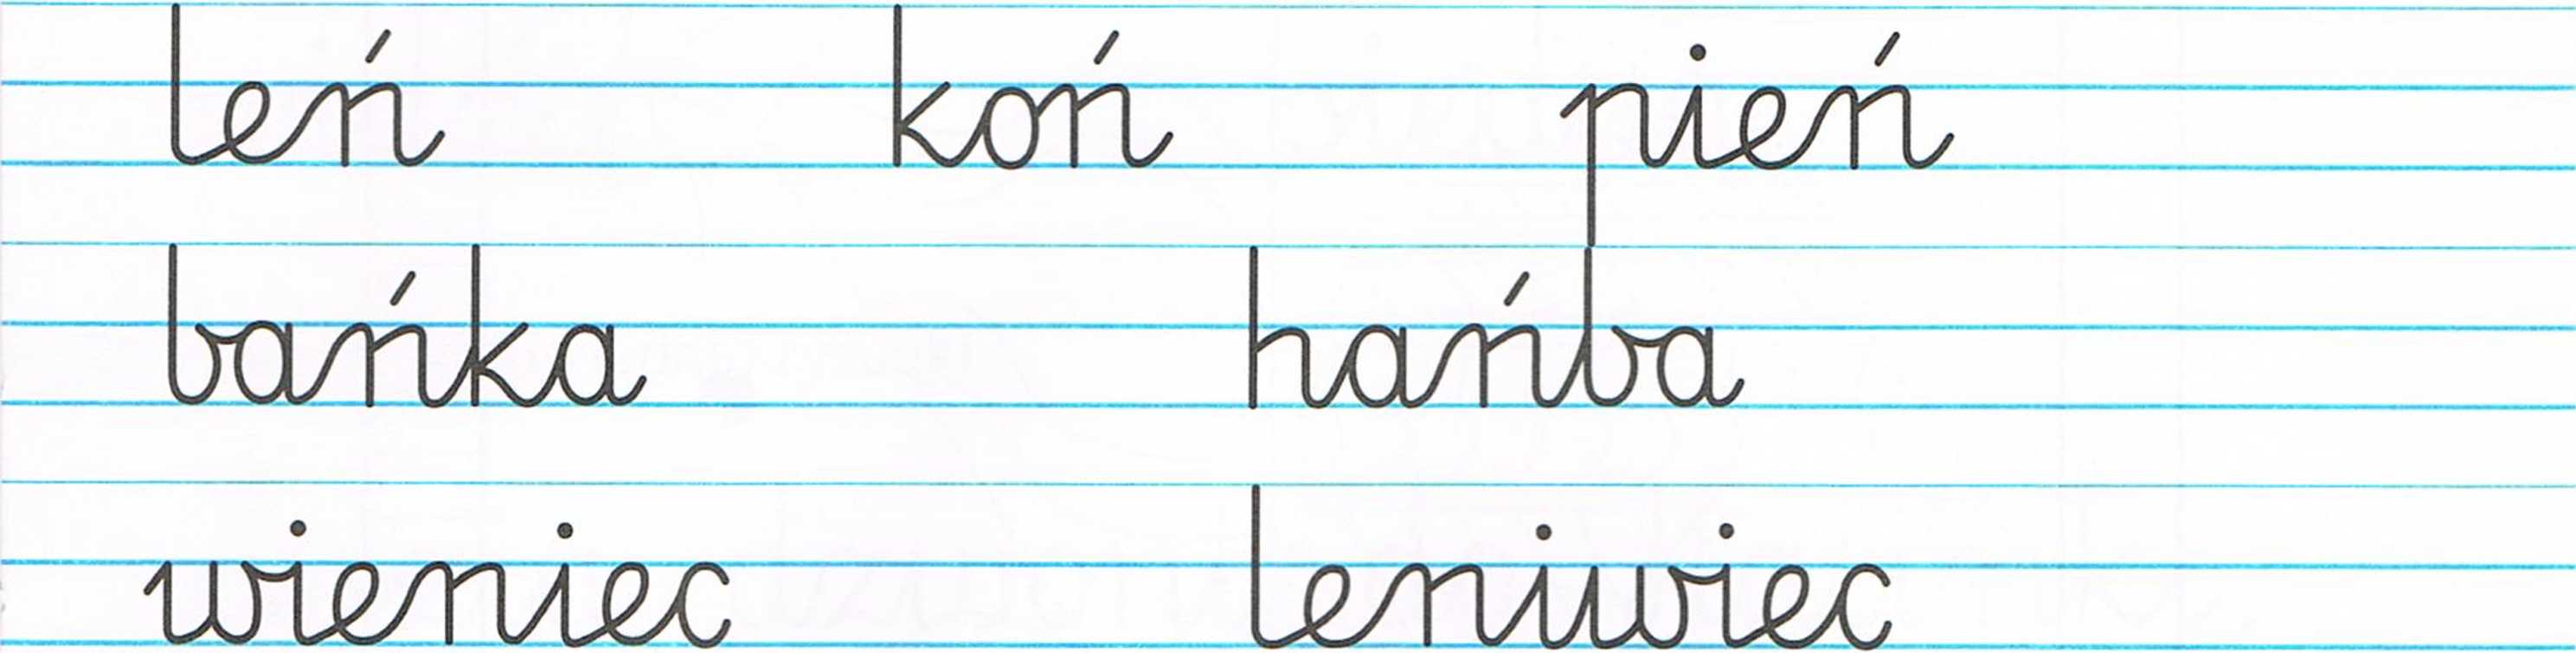 leń koń pień
bańka hańba
wieniec leniwiec